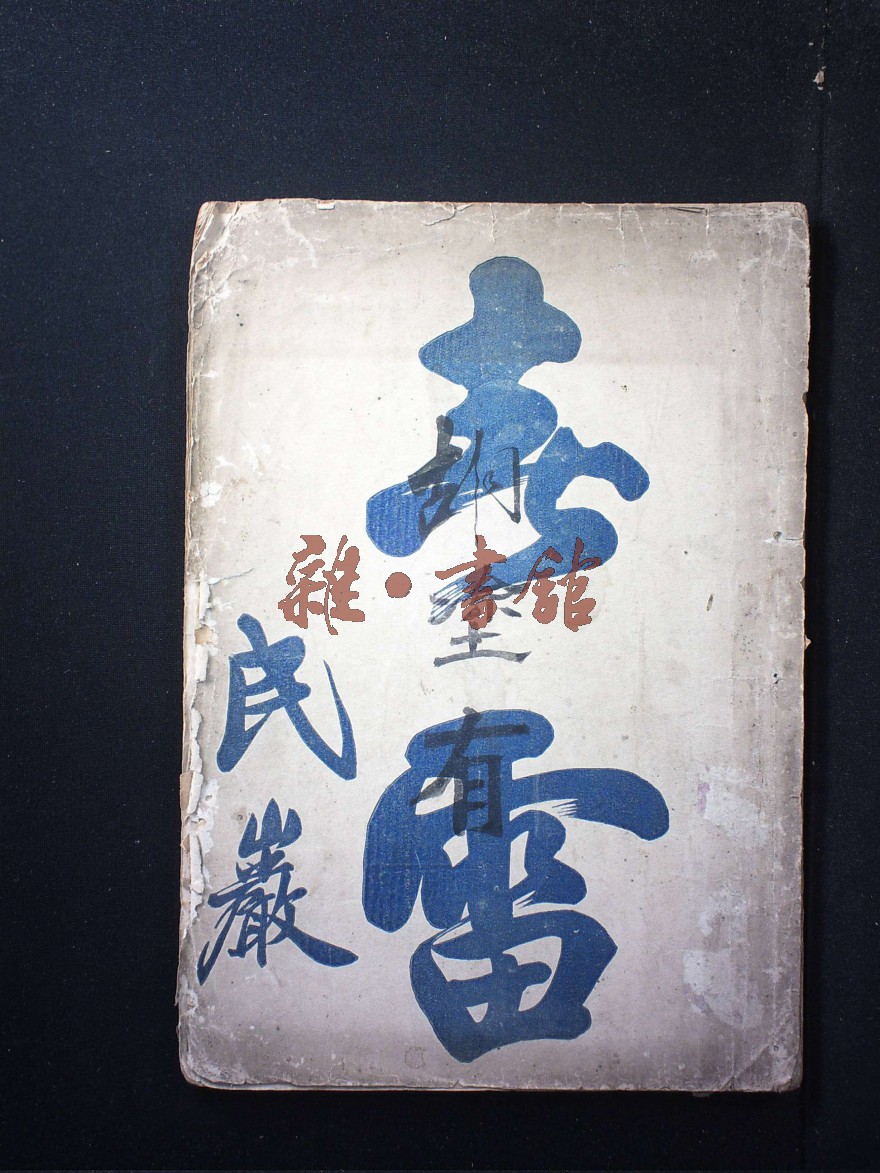 雷
民巖
胡
有
雜·書館